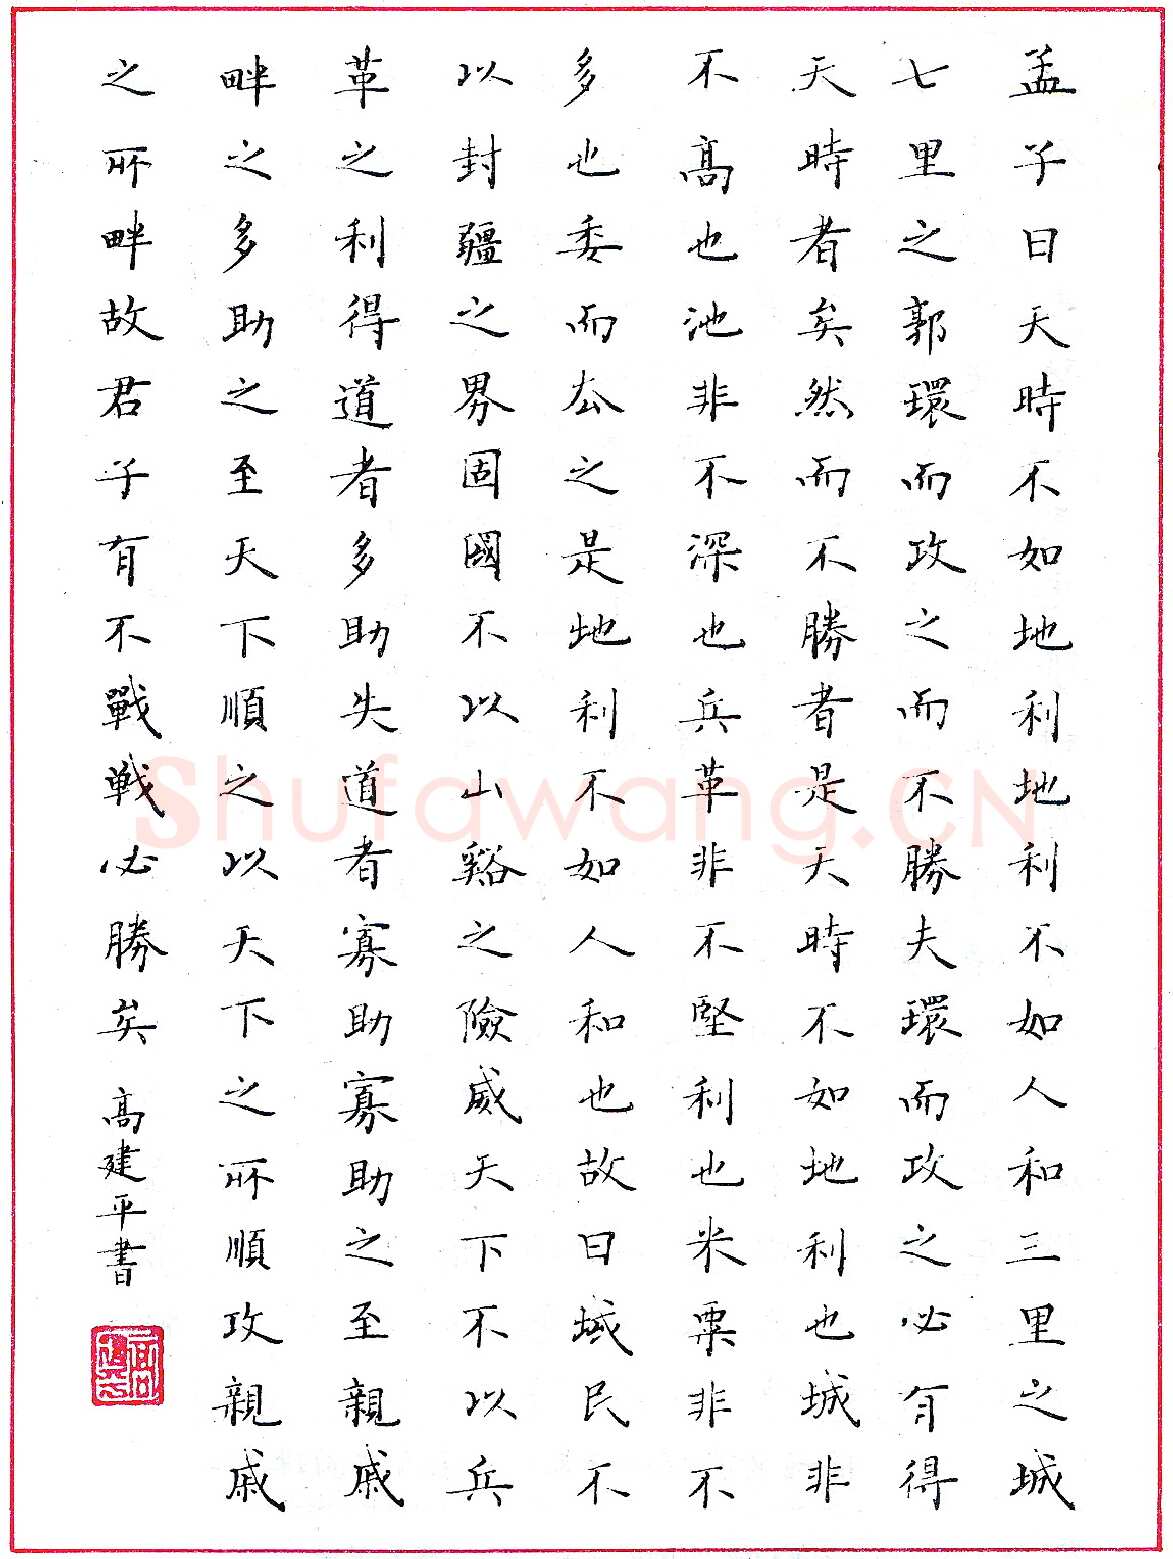 孟子曰天時不如地利地利不如人和三里之城
七里之郭環而攻之而不勝夫環而攻之必有得
天時者矣然而不勝者是天時不如地利也城非
不髙也池非不深也兵革非不堅利也米粟非不
多也委而厺之是地利不如人和也故曰域民不
以封疆之界固國不以山谿之險威天下不以兵
革之利得道者多助失道者寡助寡助之至親戚
畔之多助之至天下順之以天下之所順攻親戚
之所畔故君子有不戰戦必勝矣
髙建平書
Shufawang.CN